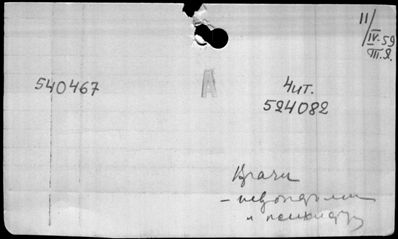 11/IV.59
Ш.Я.
540467
А
Чит.
524082
Врачи
- невропатологи
и психиатры